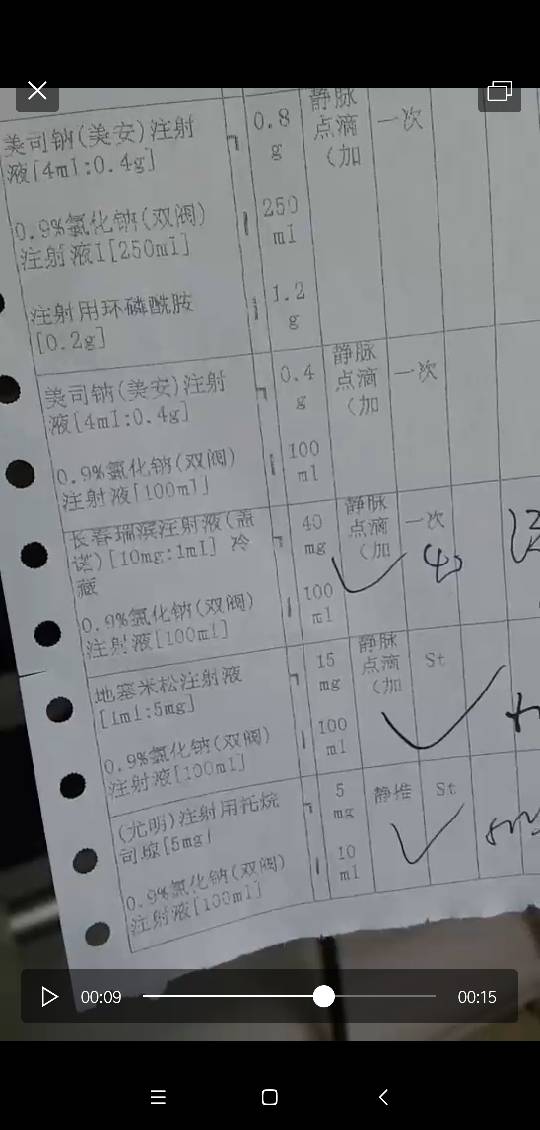 美司钠(美安)注射
液[4ml:0.4g]
0.8
g
静脉
点滴
(加
一次
0.9%氯化钠(双阀)
注射液I[250ml]
250
ml
注射用环磷酰胺
[0.2g]
1.2
g
美司钠(美安)注射
液[4ml:0.4g]
0.4
g
静脉
点滴
(加
一次
0.9%氯化钠(双阀)
注射液[100ml]
100
ml
长春瑞滨注射液(盖
诺)[10mg:1ml] 冷
藏
40
mg
静脉
点滴
(加
一次
0.9%氯化钠(双阀)
注射液[100ml]
100
ml
地塞米松注射液
[1ml:5mg]
15
mg
静脉
点滴
(加
St
0.9%氯化钠(双阀)
注射液[100ml]
100
ml
(尤明)注射用托烷
司琼[5mg]
5
mg
静推
St
0.9%氯化钠(双阀)
注射液[100ml]
10
ml
00:09
00:15